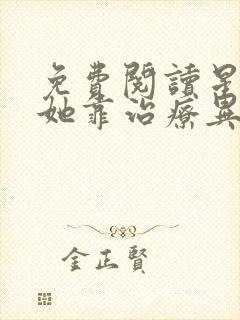 免費閱讀星
她靠治療異
金正賢